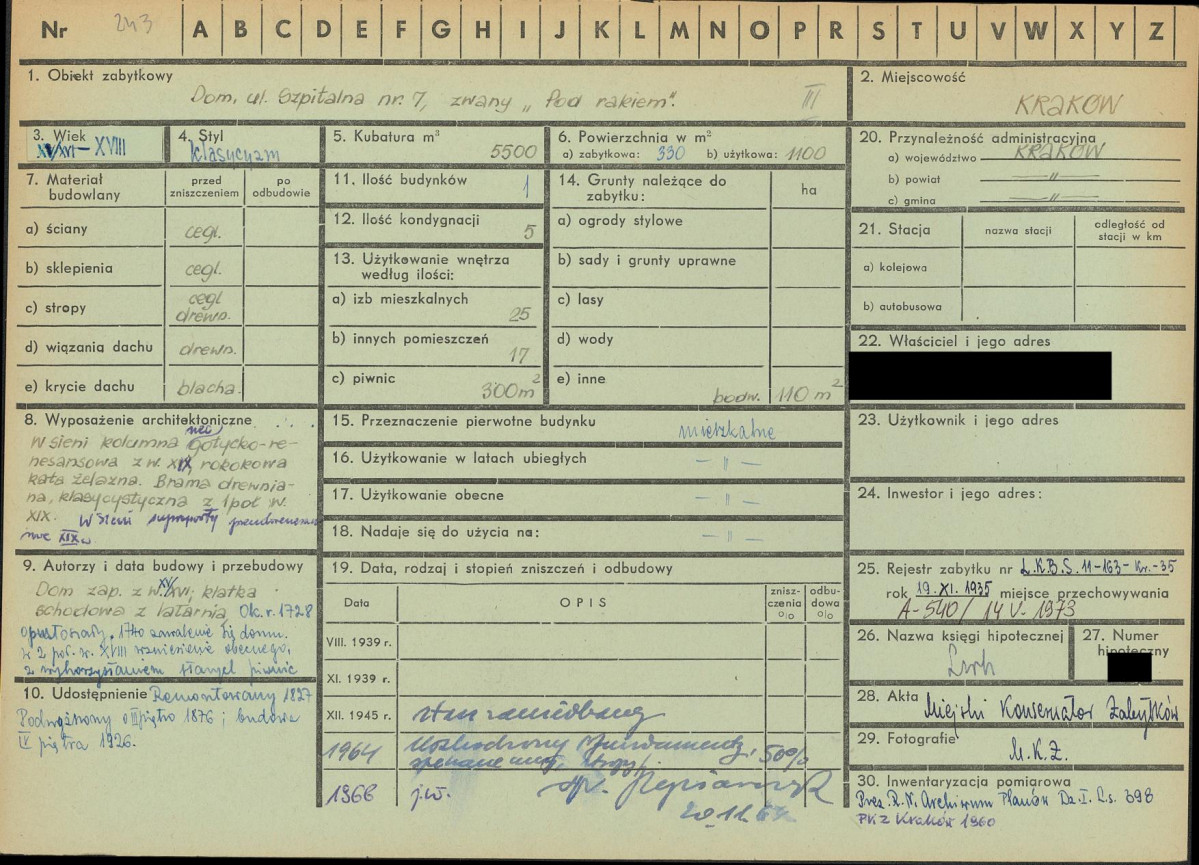 Nr 243 A B C D E F G H I J K L M N O P R S T U V W X Y Z
1. Obiekt zabytkowy
Dom, ul. Szpitalna nr. 7, zwany „Pod rakiem". III
2. Miejscowość
KRAKÓW
3. Wiek
XV/XVI – XVIII
4. Styl
klasycyzm
5. Kubatura m³
5500
6. Powierzchnia w m²
a) zabytkowa: 330 b) użytkowa: 1100
7. Materiał budowlany
przed zniszczeniem
po odbudowie
a) ściany cegl.
b) sklepienia cegl.
c) stropy cegl drewn.
d) wiązania dachu drewn.
e) krycie dachu blacha.
8. Wyposażenie architektoniczne
W sieni kolumna neo gotycko-re-
nesansowa z w. XIX, rokokowa
kata żelazna. Brama drewnia-
na, klasycystyczna z 1 poł w.
XIX. W sieni supraporty
XIX w
9. Autorzy i data budowy i przebudowy
Dom zap. z w. XV/XVI; klatka
schodowa z latarnią, Ok. r. 1728
opustoszały, 1740 zawalenie się domu.
w 2 poł. w. XVIII wzniesienie obecnego,
z wykorzystaniem starych piwnic
10. Udostępnienie Remontowany 1827
Podwyższony o III piętro 1876; budowa
IV piętra 1926.
11. Ilość budynków 1
12. Ilość kondygnacji 5
13. Użytkowanie wnętrza
według ilości:
a) izb mieszkalnych 25
b) innych pomieszczeń 17
c) piwnic 300 m²
14. Grunty należące do
zabytku: ha
a) ogrody stylowe
b) sady i grunty uprawne
c) lasy
d) wody
e) inne podw. 110 m²
15. Przeznaczenie pierwotne budynku mieszkalne
16. Użytkowanie w latach ubiegłych – " –
17. Użytkowanie obecne – " –
18. Nadaje się do użycia na: – " –
19. Data, rodzaj i stopień zniszczeń i odbudowy
Data OPIS znisz-czenia % odbu-dowa %
VIII. 1939 r.
XI. 1939 r.
XII. 1945 r. stan zaniedbany
1964 Uszkodzony fundamenty, 50%
spękane mury, stropy
1966 j.w.
20.11.64
20. Przynależność administracyjna
a) województwo KRAKÓW
b) powiat – " –
c) gmina – " –
21. Stacja nazwa stacji odległość od stacji w km
a) kolejowa
b) autobusowa
22. Właściciel i jego adres
23. Użytkownik i jego adres
24. Inwestor i jego adres:
25. Rejestr zabytku nr L.K.B.S. 11-163-Kr.-35
rok 19. XI. 1935 miejsce przechowywania
A-540/ 14 V. 1973
26. Nazwa księgi hipotecznej
Lwh
27. Numer
hipoteczny
28. Akta Miejski Konserwator Zabytków
29. Fotografie M.K.Z.
30. Inwentaryzacja pomiarowa
Prez. R. N. Archiwum Planów Dz. I. L.s. 698
PKZ Kraków 1960